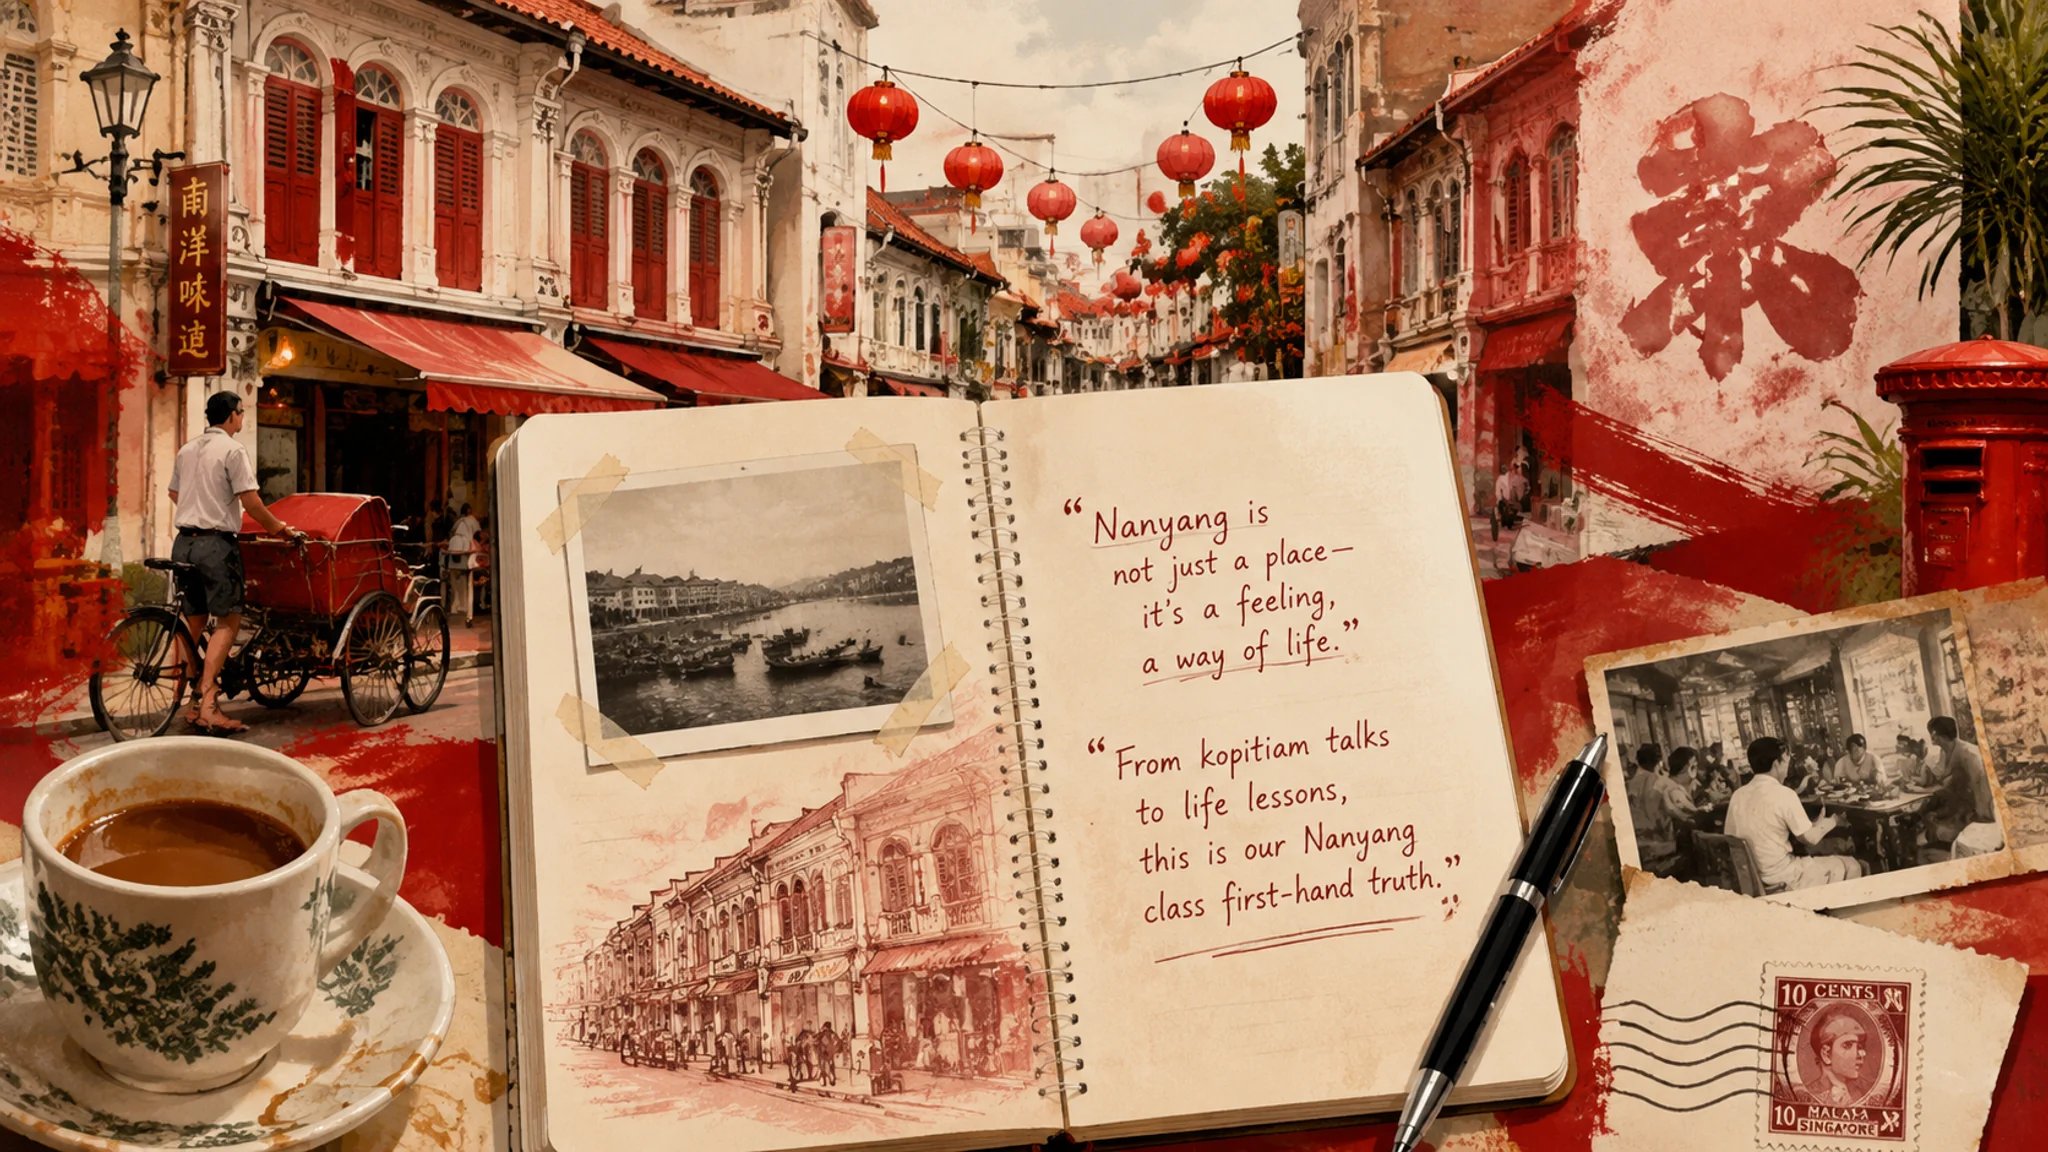 南洋味道
“Nanyang is
not just a place—
it's a feeling,
a way of life.”
“From kopitiam talks
to life lessons,
this is our Nanyang
class first-hand truth.”
10 CENTS
10
MALAYA
SINGAPORE